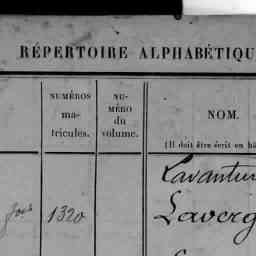 RÉPERTOIRE ALPHABÉTIQU
NUMÉROS
ma-
tricules.
NU-
MÉRO
du
volume.
NOM.
(Il doit être écrit en bâ
Lavantur
1320
Laverg